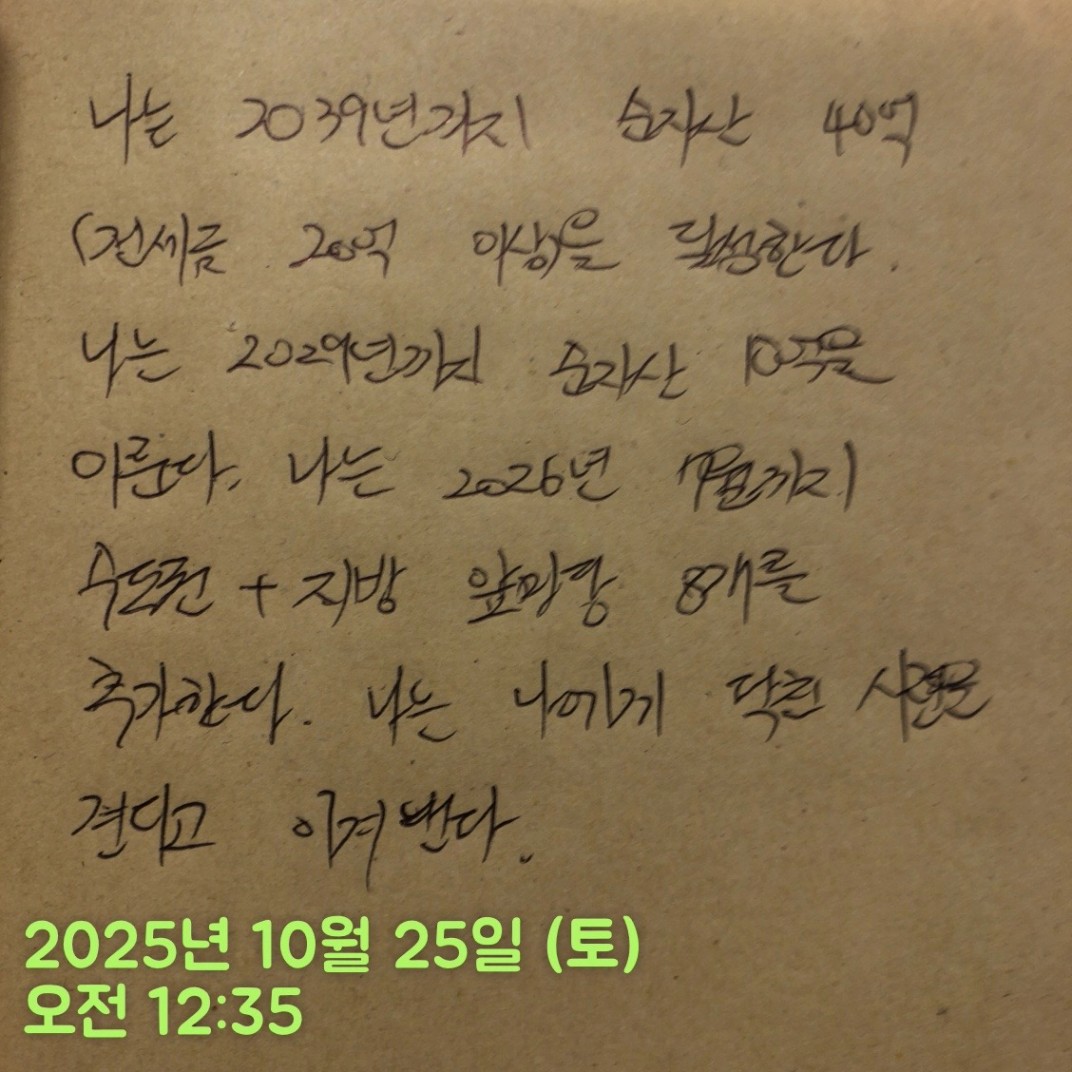 나는 2039년까지 순자산 40억
(전세금 20억 이상)을 달성한다.
나는 2029년까지 순자산 10억을
이룬다. 나는 2026년 7월까지
수도권 + 지방 앞마당 8개를
추가한다. 나는 나에게 닥친 시련을
견디고 이겨낸다.
2025년 10월 25일 (토)
오전 12:35